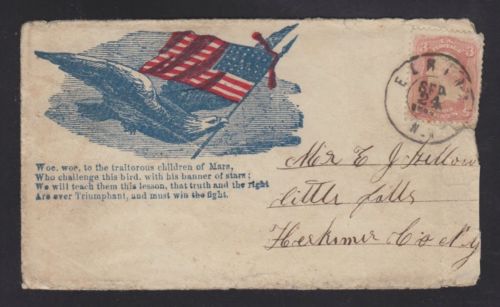 3
ELMIRA
SEP
24
N.Y.
Woe, woe, to the traitorous children of Mars,
Who challenge this bird, with his banner of stars;
We will teach them this lesson, that truth and the right
Are ever Triumphant, and must win the fight.
E J
Little Falls
Herkimer Co N.Y